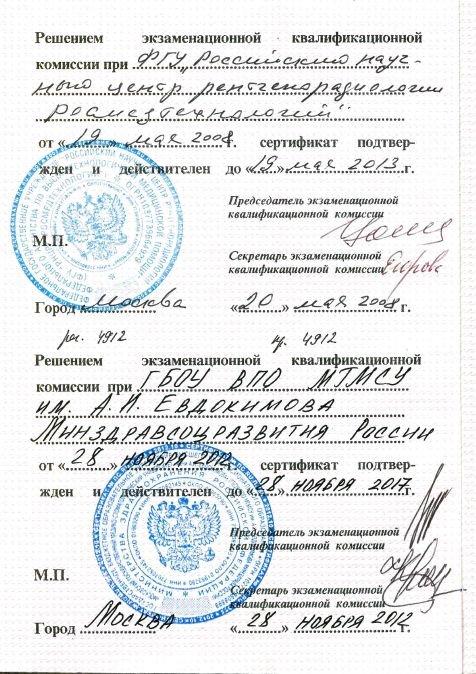 Решением экзаменационной квалификационной
комиссии при ФГУ "Российский науч-
ный центр рентгенорадиологии
Росмедтехнологий"
от «19» мая 2008 г. сертификат подтвер-
жден и действителен до «19» мая 2013 г.
Председатель экзаменационной
квалификационной комиссии
М.П.
Секретарь экзаменационной
квалификационной комиссии Егорова
Город Москва «20» мая 2008 г.
рег. 4912 пр. 4912
Решением экзаменационной квалификационной
комиссии при ГБОУ ВПО МГМСУ
им. А.И. Евдокимова
Минздравсоцразвития России
от «28» ноября 2012 г. сертификат подтвер-
жден и действителен до «28» ноября 2017 г.
Председатель экзаменационной
квалификационной комиссии
М.П.
Секретарь экзаменационной
квалификационной комиссии
Город Москва «28» ноября 2012 г.